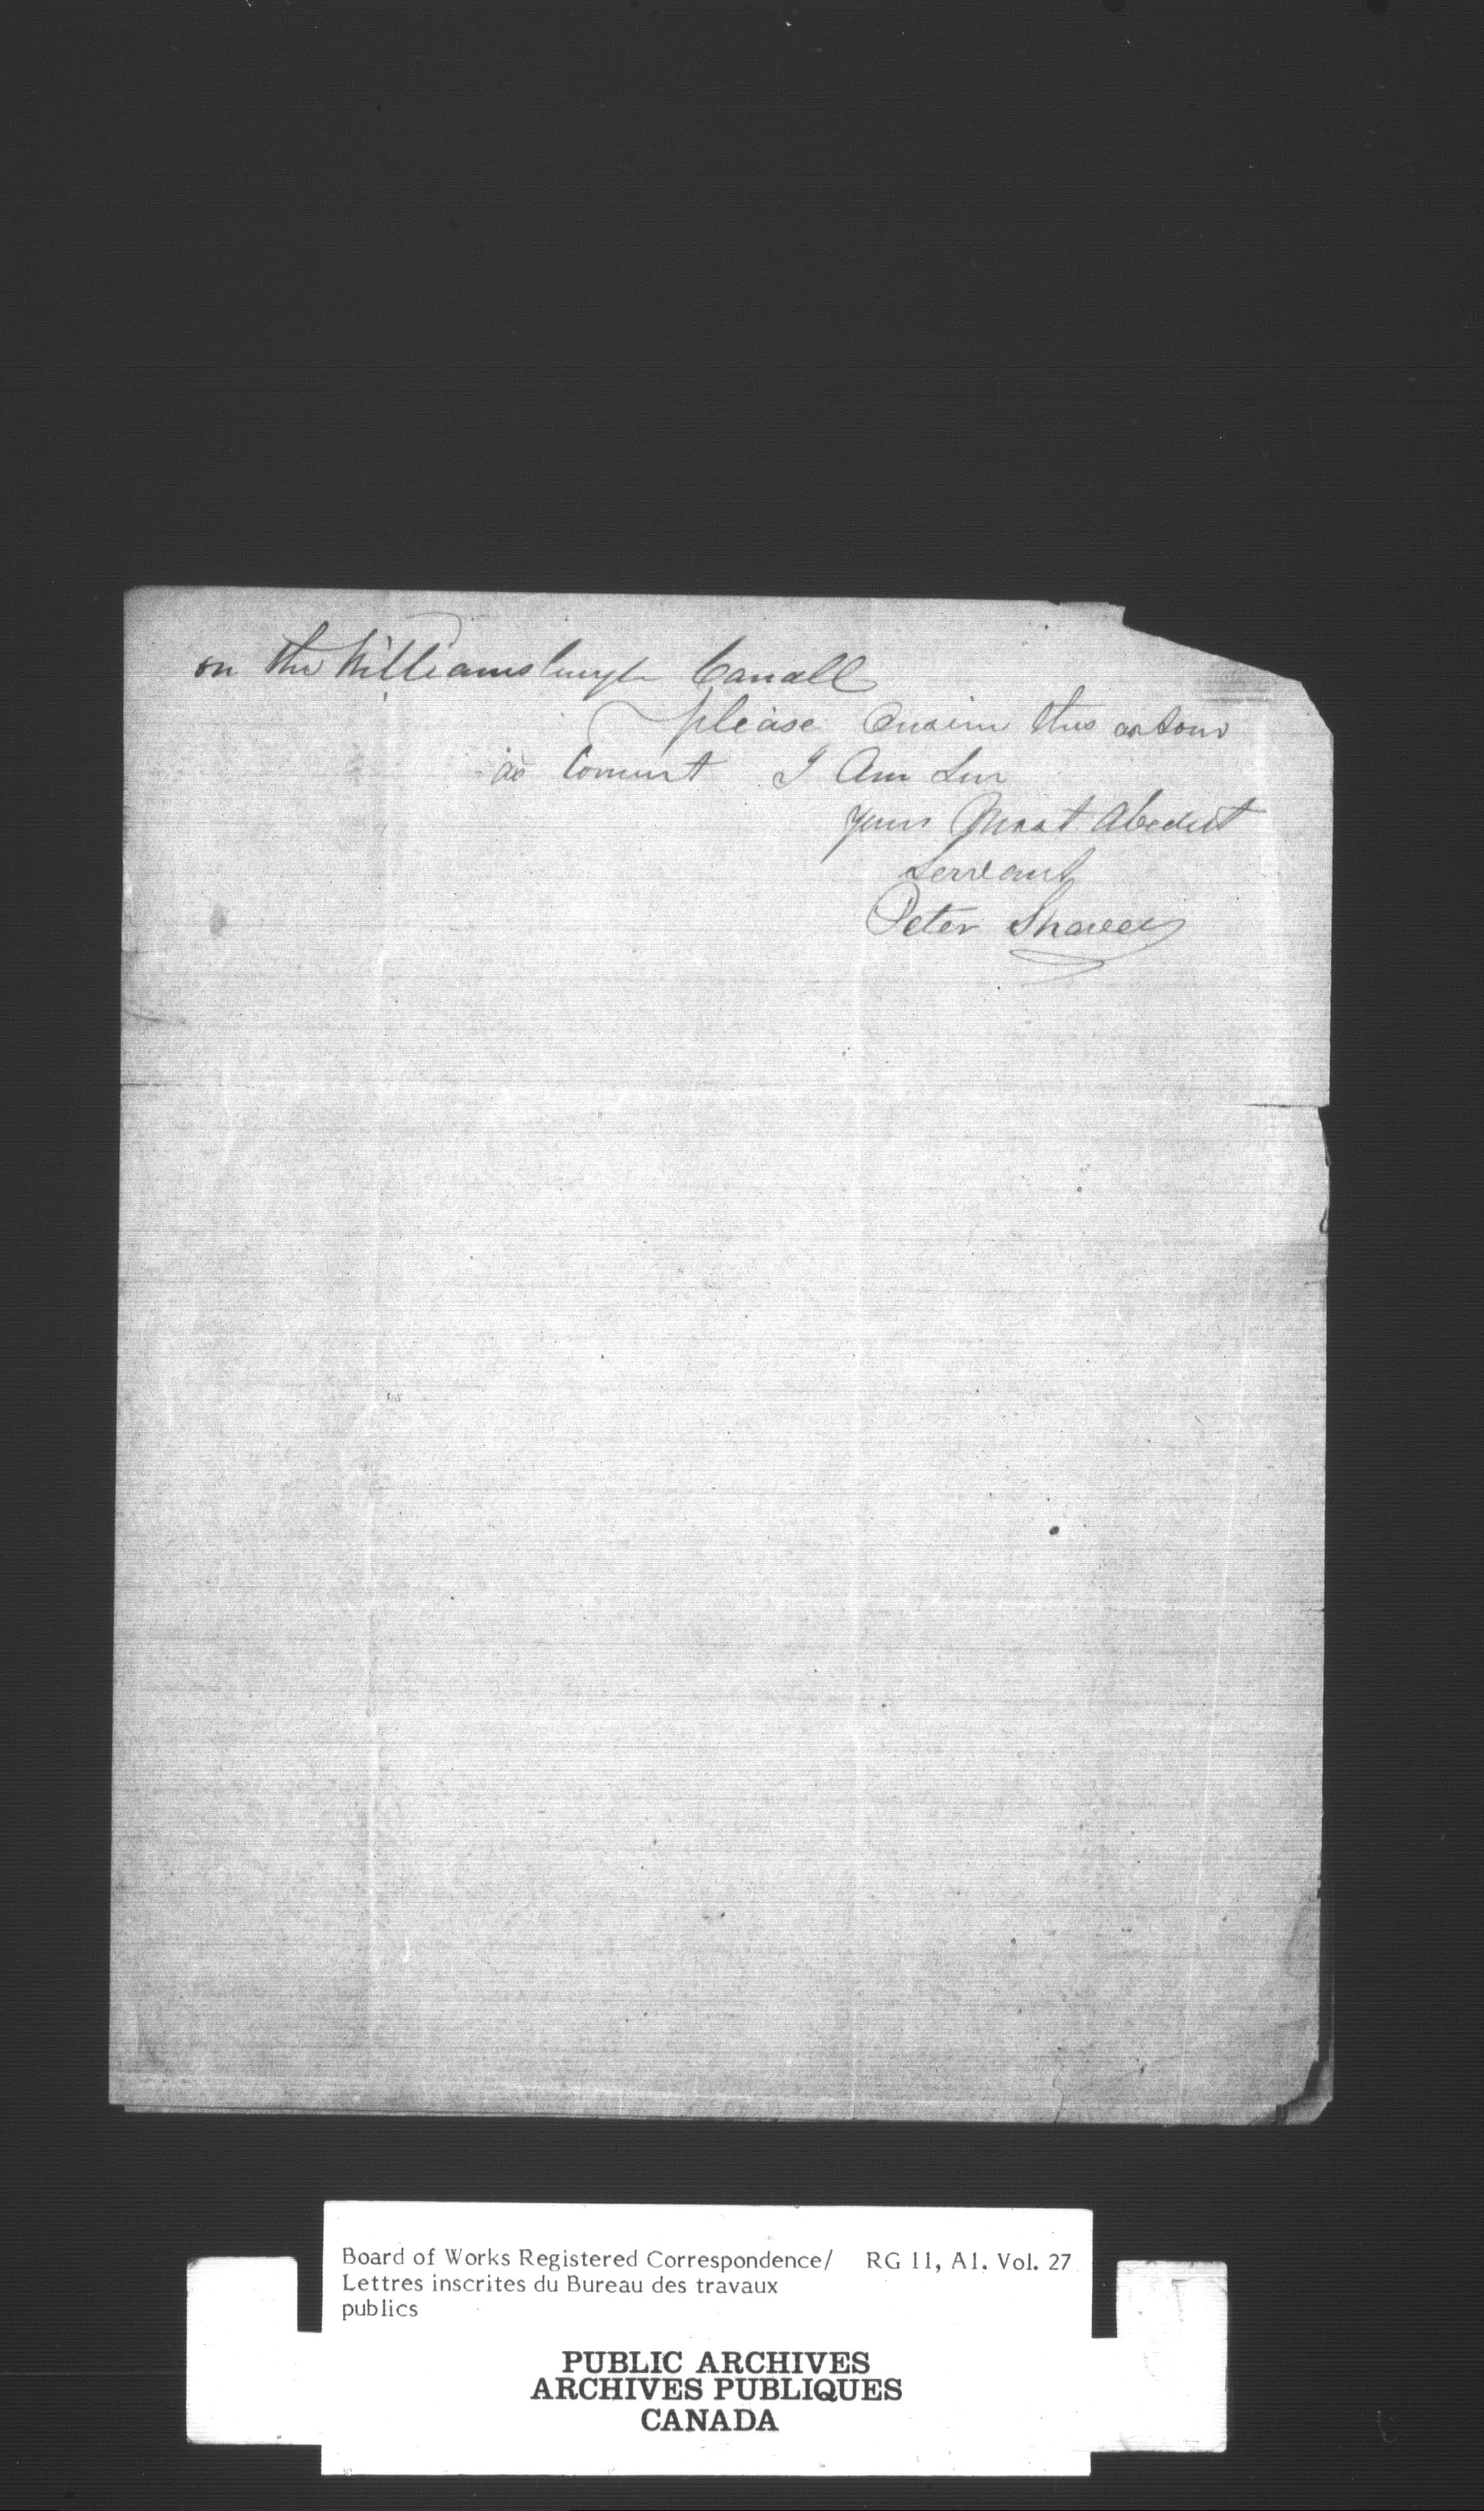 on the Williamsburgh Canall
please this as soon
as I Am Sur
yours Most Abedint
Servant
Peter Shaver
Board of Works Registered Correspondence/ RG 11, A1, Vol. 27
Lettres inscrites du Bureau des travaux
publics
PUBLIC ARCHIVES
ARCHIVES PUBLIQUES
CANADA